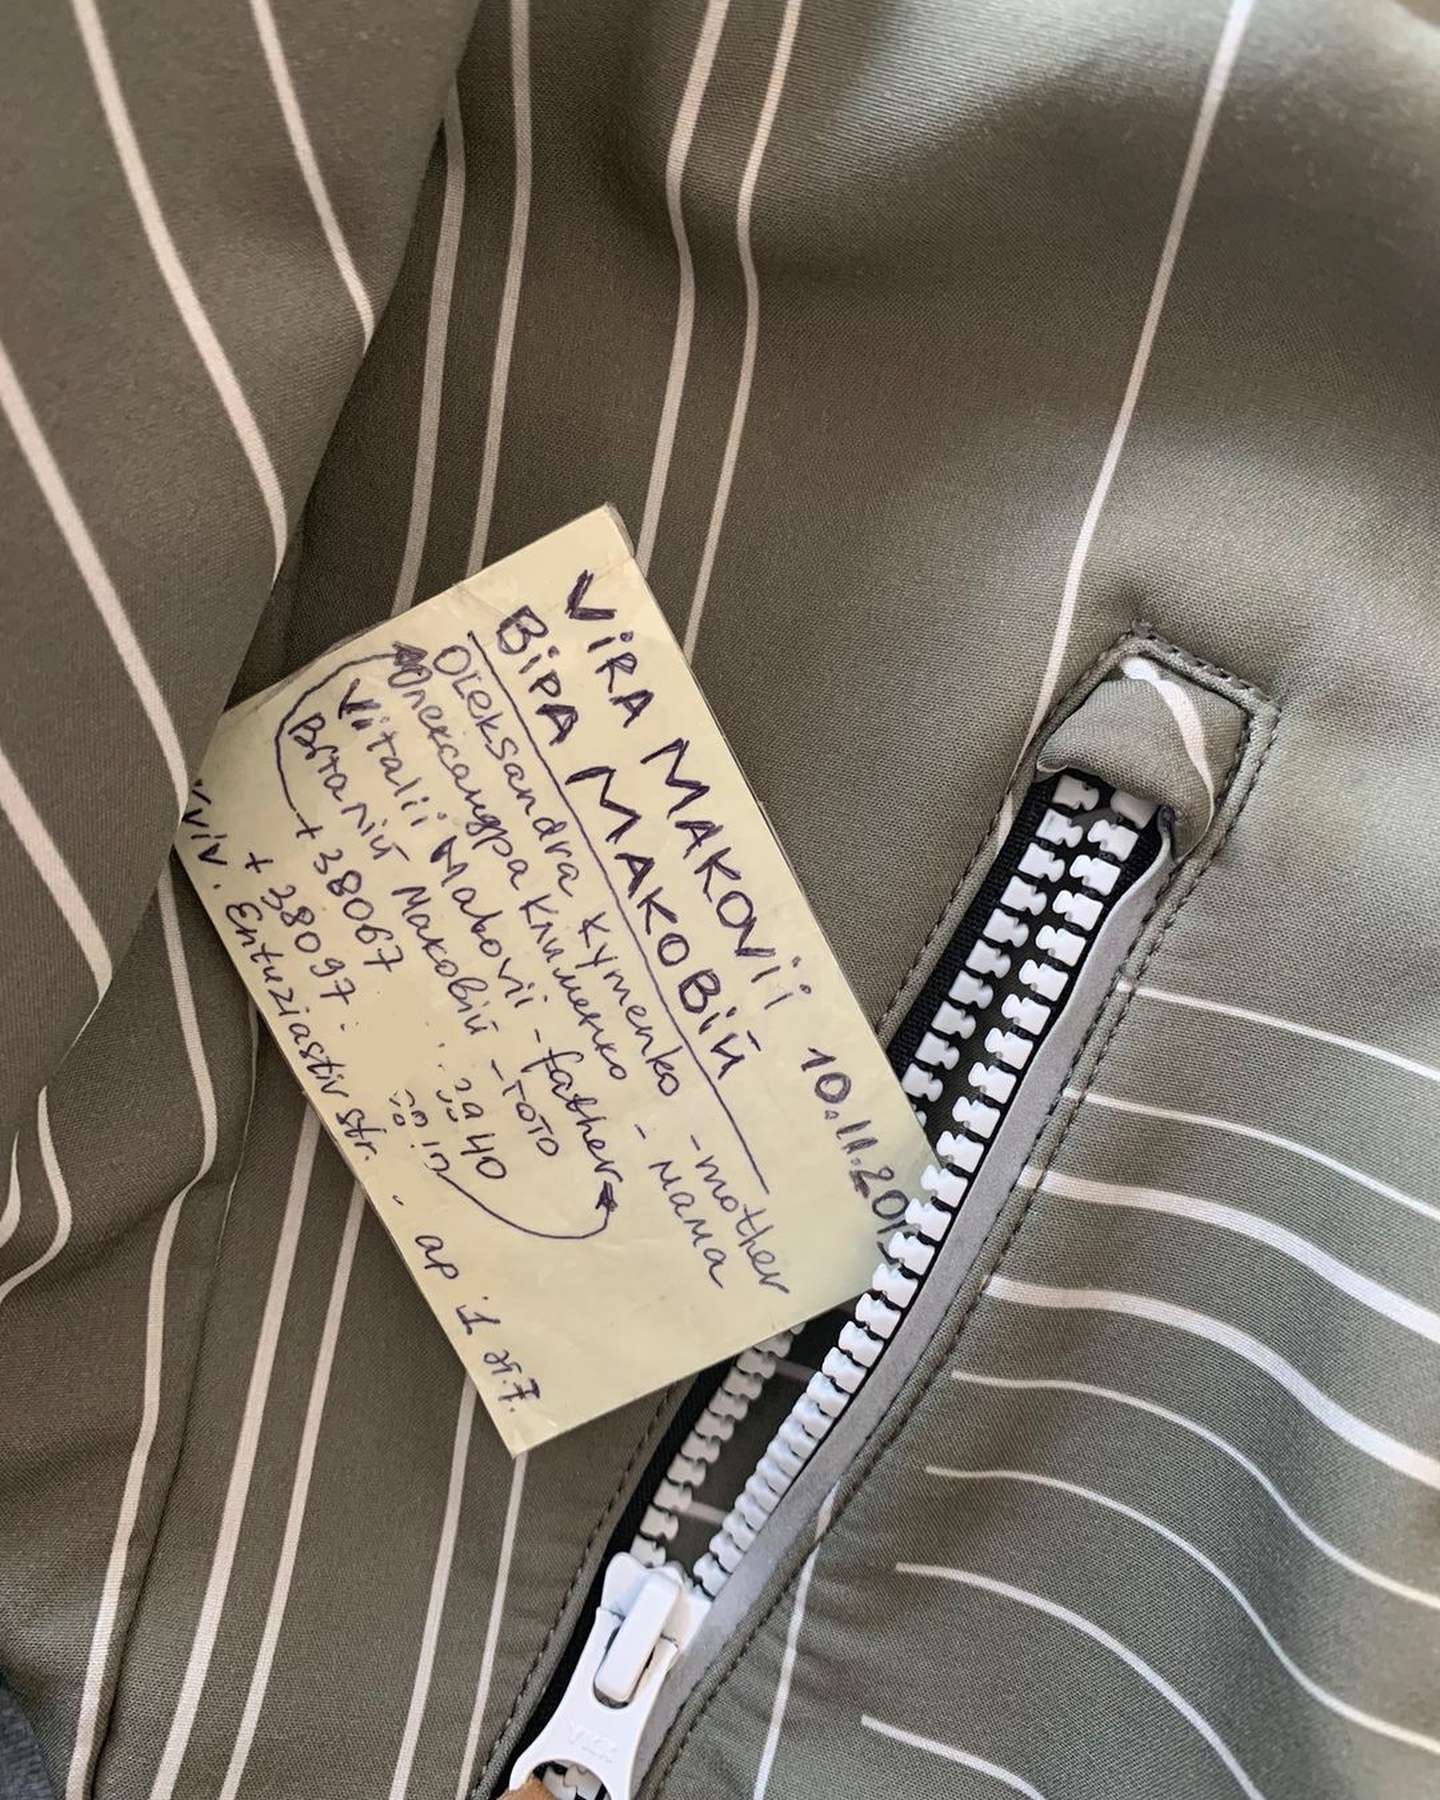 VIRA MAKOVII 10.11.20
ВІРА МАКОВІЙ
Oleksandra Kymenko - mother
Олександра Клименко - мама
Vitalii Makovii - father
Віталій Маковій - тато
+38067
+38097
Entuziastiv str. ap 1
YKK